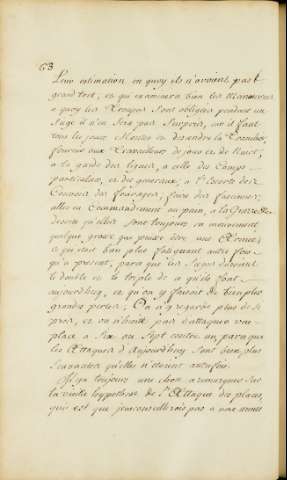 63
leur estimation en quoy ils n'avoient pas
grand tort, et qui examinera bien les Manœuvres
a quoy les Troupes sont obligées pendant un
Siege il n'en sera pas Surpris, car il faut
tous les jours Monter et descendre la Tranchée,
fournir aux Travailleurs de jour et de Nuict,
a la garde des lignes, a celle des Camps
particuliers, et des generaux, a l'Escorte des
Convois des fourages, faire des fascines;
aller en Commandement au pain, a la Guerre &
de sorte qu'elles sont toujours en mouvement
quelque grace que puisse être une
ce qui étoit bien plus fatiguant autre fois
qu'a present, parce que les Sieges duroient
le double et le triple de ce qu'ils font
aujourdhuy, et qu'on y faisoit de bien plus
grandes pertes; On n'y regarde plus de si
pres, et on n'hesite pas d'attaquer une
place a Six ou Sept contre un parce que
les Attaques d'Aujourdhuy sont bien plus
Scavantes qu'elles n'étoient autrefois.
Il y a toujours une chose a remarquer sur
la vieille hypothese de l'Attaque des places,
qui est que je ne conseillerois pas a une armée